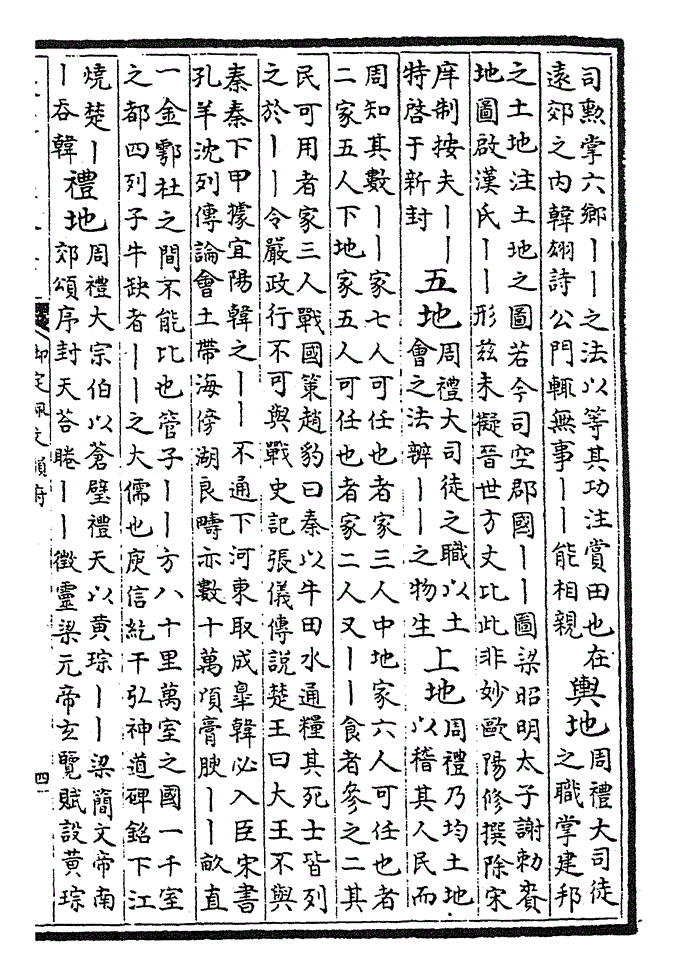 司勲掌六鄉丨丨之法以等其功注賞田也在
遠郊之内韓翃詩公門輒無事丨丨能相親
輿地
周禮大司徒
之職掌建邦
之土地注土地之圖若今司空郡國丨丨圖梁昭明太子謝勑賚
地圖啟漢氏丨丨形兹未擬晉世方丈比此非妙歐陽修撰除宋
庠制按夫丨丨
特啓于新封
五地
周禮大司徒之職以土
會之法辨丨丨之物生
上地
周禮乃均土地
以稽其人民而
周知其數丨丨家七人可任也者家三人中地家六人可任也者
二家五人下地家五人可任也者家二人又丨丨食者參之二其
民可用者家三人戰國策趙豹曰秦以牛田水通糧其死士皆列
之於丨丨令嚴政行不可與戰史記張儀傳説楚王曰大王不與
秦秦下甲據宜陽韓之丨丨不通下河東取成臯韓必入臣宋書
孔羊沈列傳論會土帶海傍湖良疇亦數十萬頃膏腴丨丨畝直
一金鄠杜之間不能比也管子丨丨方八十里萬室之國一千室
之都四列子牛缺者丨丨之大儒也庾信紇干弘神道碑銘下江
燒楚丨
丨吞韓
禮地
周禮大宗伯以蒼璧禮天以黄琮丨丨梁簡文帝南
郊頌序封天荅睠丨丨徵靈梁元帝玄覽賦設黄琮
御定佩文韻府
四